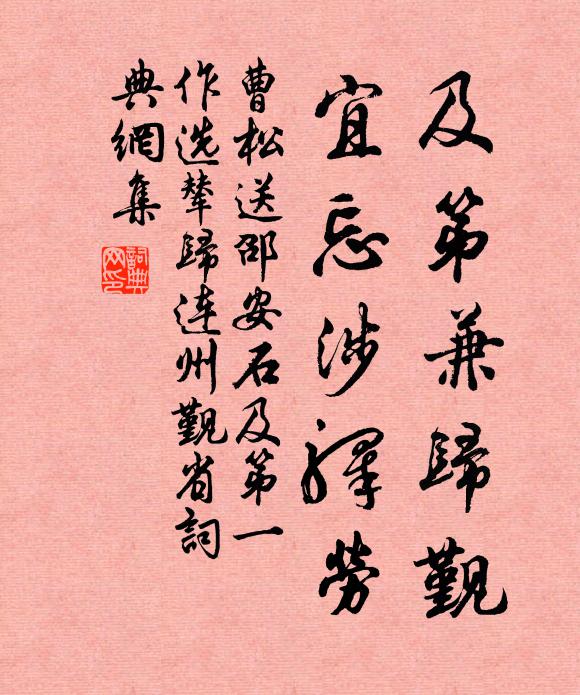 及第兼歸覲
宜忘涉驛勞
曹松送邵安石及第一
作选輦歸连州觐省詞
典網集
詞典網印